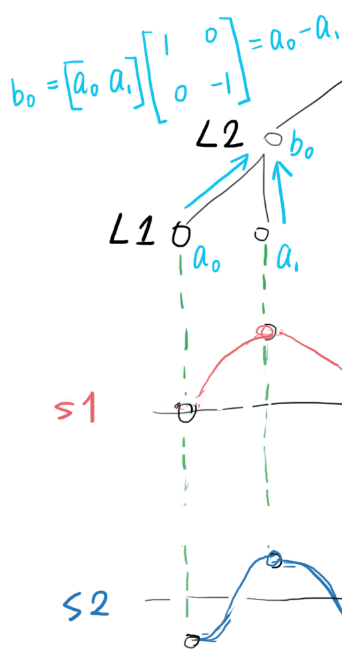 b₀ = [a₀ a₁] [1 0 0 -1] = a₀ - a₁
L2 b₀
L1 a₀ a₁
S1
S2